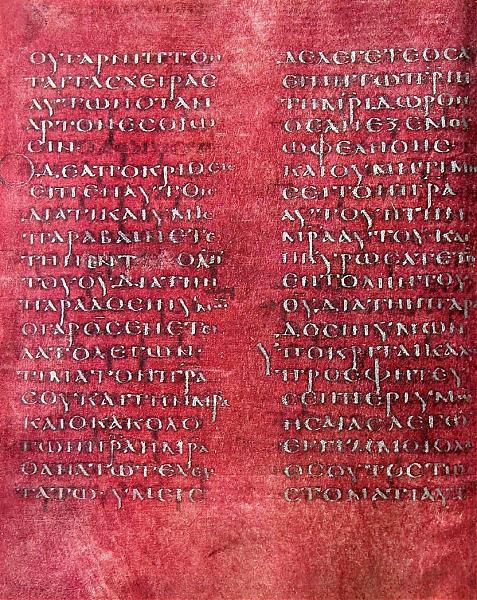 ΟΥΓΑΡΝΙΠΤΟΝ
ΤΑΙΤΑϹΧΕΙΡΑϹ
ΑΥΤΩΝΟΤΑΝ
ΑΡΤΟΝΕϹΘΙΩ
ϹΙΝ
ΟΔΕΑΠΟΚΡΙΘΕΙϹ
ΕΙΠΕΝΑΥΤΟΙϹ
ΔΙΑΤΙΚΑΙΥΜΕΙϹ
ΠΑΡΑΒΑΙΝΕΤΕ
ΤΗΝΕΝΤΟΛΗΝ
ΤΟΥΘΥΔΙΑΤΗΝ
ΠΑΡΑΔΟϹΙΝΥΜΩ
ΟΓΑΡΘϹΕΝΕΤΕΙ
ΛΑΤΟΛΕΓΩΝ·
ΤΙΜΑΤΟΝΠΡΑ
ϹΟΥΚΑΙΤΗΝΜΡΑ
ΚΑΙΟΚΑΚΟΛΟ
ΓΩΝΠΡΑΗΜΡΑ
ΘΑΝΑΤΩΤΕΛΕΥ
ΤΑΤΩ·ΥΜΕΙϹ
ΔΕΛΕΓΕΤΕΟϹΑ
ΕΙΠΗΤΩΠΡΙΗ
ΤΗΜΡΙΔΩΡΟΝ
ΟΕΑΝΕΞΕΜΟΥ
ΩΦΕΛΗΘΗϹ
ΚΑΙΟΥΜΗΤΙΜΗ
ϹΕΙΤΟΝΠΡΑ
ΑΥΤΟΥΗΤΗΝ
ΜΡΑΑΥΤΟΥΚΑΙ
ΗΚΥΡΩϹΑΤΕΤΗ
ΕΝΤΟΛΗΝΤΟΥ
ΘΥΔΙΑΤΗΝΠΑΡΑ
ΔΟϹΙΝΥΜΩΝ
ΥΠΟΚΡΙΤΑΙΚΑΛ
ΠΡΟΕΦΗΤΕΥ
ϹΕΝΠΕΡΙΥΜΩ
ΗϹΑΙΑϹΛΕΓΩ
ΕΓΓΙΖΕΙΜΟΙΟΛΑ
ΟϹΟΥΤΟϹΤΩ
ϹΤΟΜΑΤΙΑΥΤ